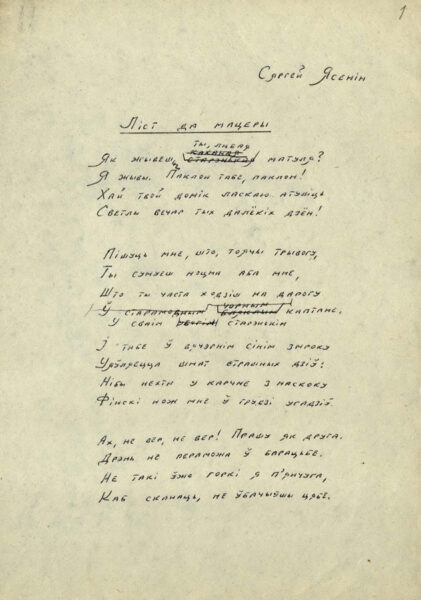 1
Сяргей Ясенін
Ліст да мацеры
ты, любая
Як жывеш, старэнькая матуля?
Я жывы. Паклон табе, паклон!
Хай твой домік ласкаю атуліць
Светлы вечар тых далёкіх дзён!
Пішуць мне, што, тоячы трывогу,
Ты сумуеш моцна аба мне,
Што ты часта ходзіш на дарогу
чорным
Ў старамодным каптане.
У сваім старэнькім
І табе ў вячэрнім сінім змроку
Уяўляецца шмат страшных дзіў:
Нібы нехта у карчме з наскоку
Фінскі нож мне ў грудзі усадзіў.
Ах, не вер, не вер! Прашу як друга.
Дрэнь не пераможа ў барацьбе.
Не такі ўжо горкі я п'янчуга,
Каб сканаць, не ўбачыўшы цябе.